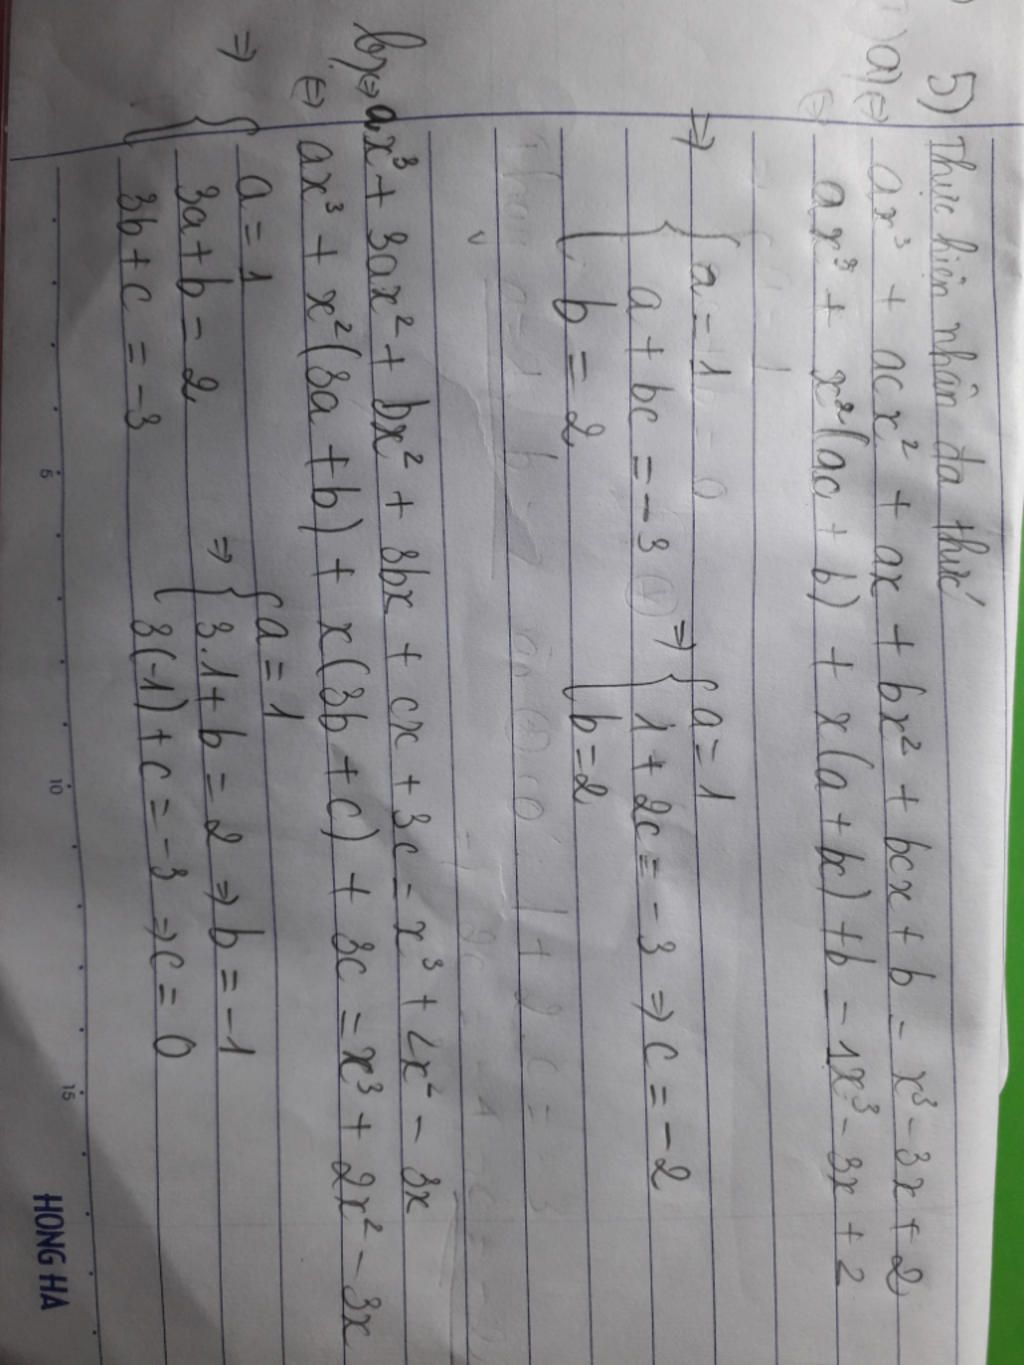 5) Thực hiện nhân đa thức
a) ⇔ ax³ + acx² + ax + bx² + bcx + b = x³ - 3x + 2
⇔ ax³ + x²(ac + b) + x(a + bc) + b = 1x³ - 3x + 2
⇒ { a = 1
a + bc = -3 ⇒ { a = 1
1 + 2c = -3 ⇒ c = -2
b = 2
b = 2
b) ⇔ ax³ + 3ax² + bx² + 3bx + cx + 3c = x³ + 2x² - 3x
⇔ ax³ + x²(3a + b) + x(3b + c) + 3c = x³ + 2x² - 3x
⇒ { a = 1
3a + b = 2
3b + c = -3
⇒ { a = 1
3.1 + b = 2 ⇒ b = -1
3(-1) + c = -3 ⇒ c = 0
5 10 15
HONG HA